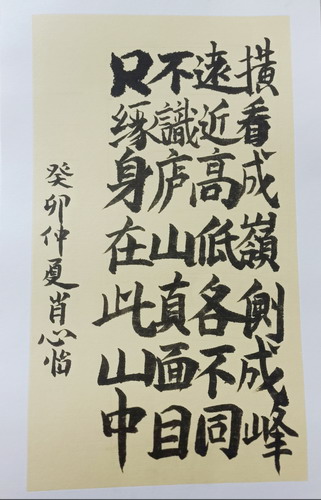 橫看成嶺側成峰
遠近高低各不同
不識庐山真面目
只緣身在此山中
癸卯仲夏肖心临